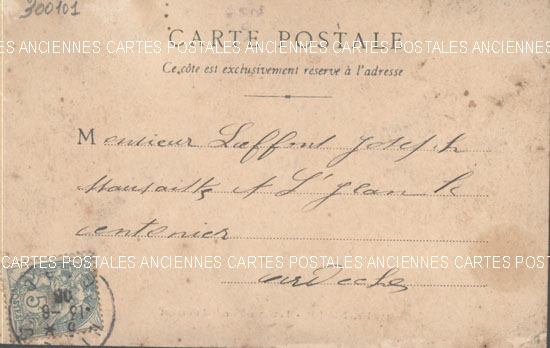 300101
CARTE POSTALE
CARTES POSTALES ANCIENNES CARTES POSTALES ANCIENNES CARTES POSTALES ANCIENNES
Ce côté est exclusivement réservé à l'adresse
Monsieur Laffont Joseph
à St Jean le
centenier
ardèche
CARTES POSTALES ANCIENNES CARTES POSTALES ANCIENNES CARTES POSTALES ANCIENNES
5